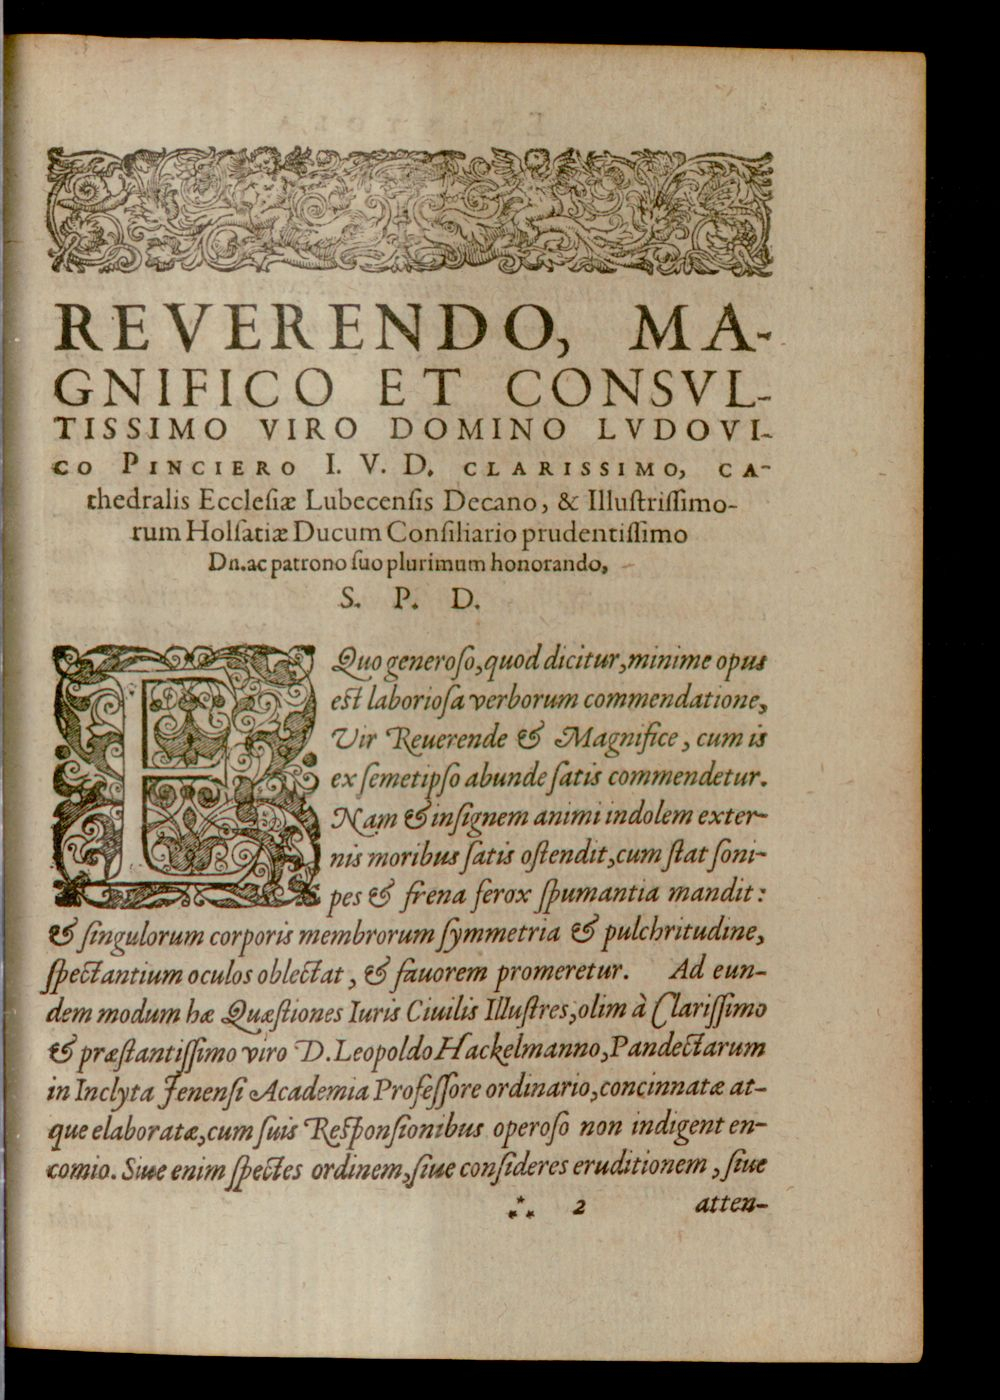 REVERENDO, MA-
GNIFICO ET CONSVL-
TISSIMO VIRO DOMINO LVDOVI-
CO PINCIERO I. V. D. CLARISSIMO, CA-
thedralis Eccleſiæ Lubecenſis Decano, & Illuſtriſſimo-
rum Holſatiæ Ducum Conſiliario prudentiſſimo
Dn. ac patrono ſuo plurimum honorando,
S. P. D.
EQuo generoſo, quod dicitur, minime opus
est laborioſa verborum commendatione,
Vir Reuerende & Magnifice, cum is
ex ſemetipſo abunde ſatis commendetur.
Nam & inſignem animi indolem exter-
nis moribus ſatis oſtendit, cum ſtat ſoni-
pes & frena ferox ſpumantia mandit:
& ſingulorum corporis membrorum ſymmetria & pulchritudine,
ſpectantium oculos oblectat, & fauorem promeretur. Ad eun-
dem modum hæ Quæſtiones Iuris Ciuilis Illuſtres, olim à Clariſſimo
& præſtantiſſimo viro D. Leopoldo Hackelmanno, Pandectarum
in Inclyta Jenenſi Academia Profeſſore ordinario, concinnatæ at-
que elaboratæ, cum ſuis Reſponſionibus operoſo non indigent en-
comio. Siue enim ſpectes ordinem, ſiue conſideres eruditionem, ſiue
⁂ 2 atten-